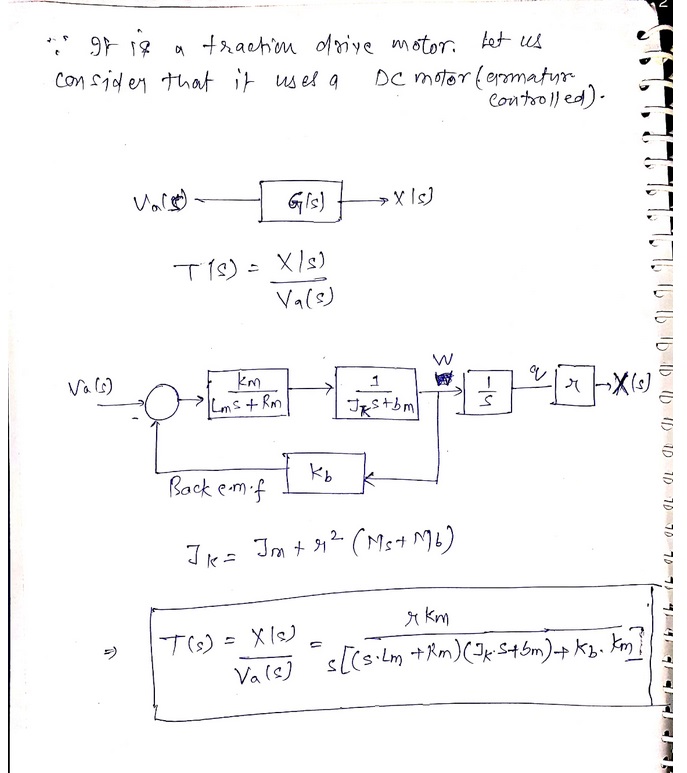 ∵ It is a traction drive motor. Let us
consider that it uses a DC motor (armatur
controlled).
Va(s) G(s) X(s)
T(s) = X(s)
Va(s)
Va(s) - km 1 W 1 q r X(s)
Lms + Rm Jks + bm s
Back e.m.f kb
Jk = Jm + r² (Ms + Mb)
⇒ T(s) = X(s) = r km
Va(s) s[(s.Lm + Rm)(Jk.s + bm) + kb. km]